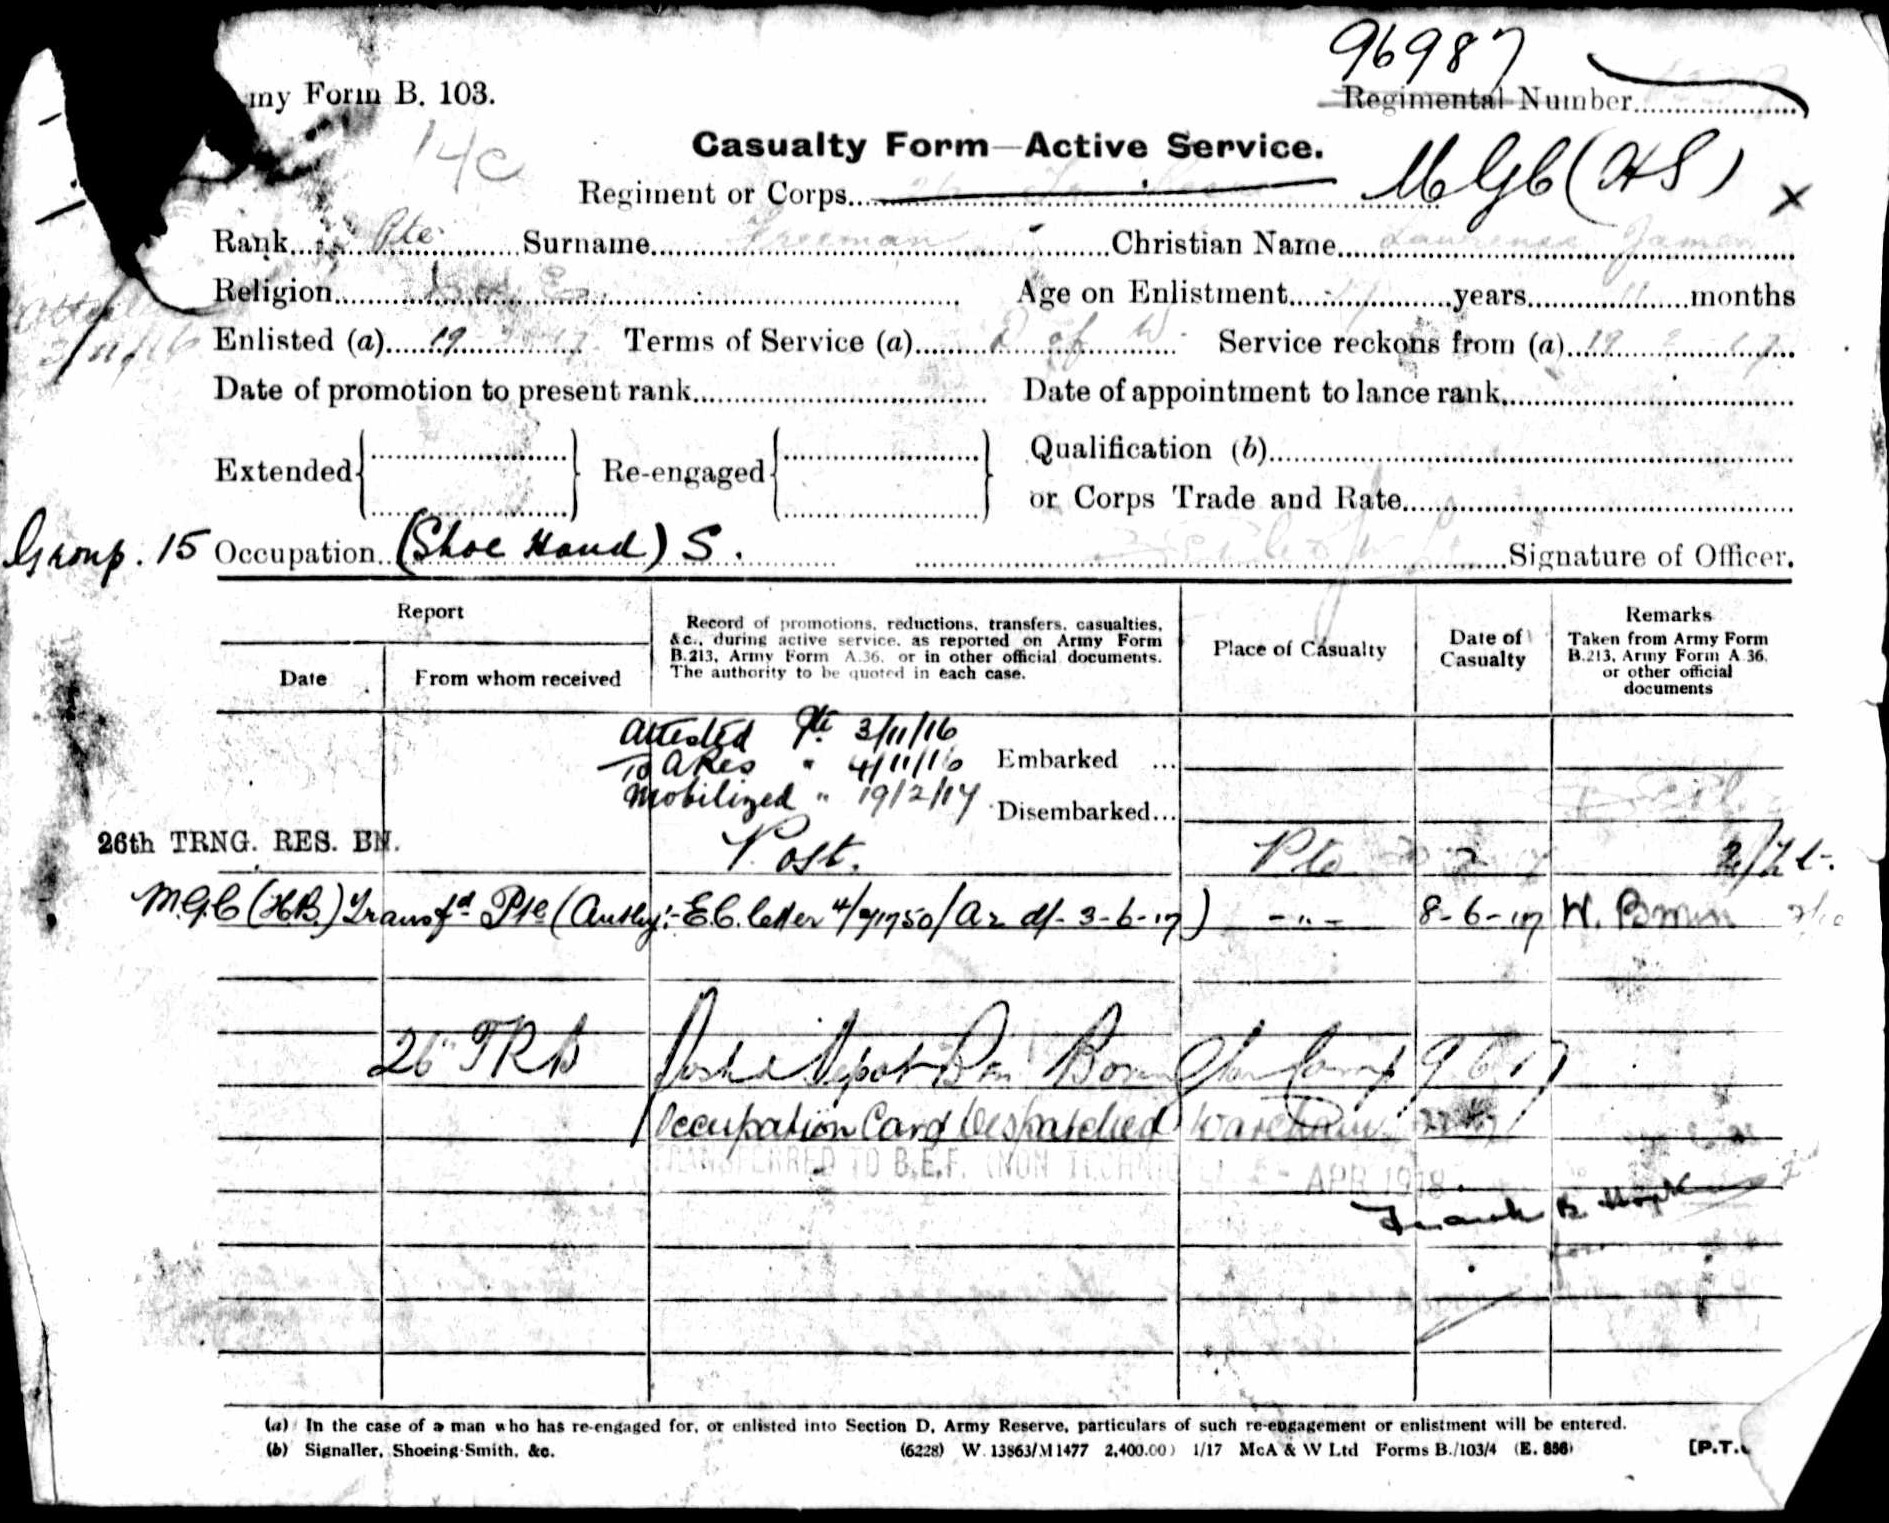 96987
my Form B. 103.
Regimental Number
14c
Casualty Form—Active Service.
Regiment or Corps MGC (HS) X
Rank Pte Surname Freeman Christian Name Laurence James
Religion C of E Age on Enlistment 17 years 11 months
Attested
3/11/16
Enlisted (a) 19 2 17 Terms of Service (a) D of W Service reckons from (a) 19 2 17
Date of promotion to present rank Date of appointment to lance rank
Extended Re-engaged Qualification (b)
or Corps Trade and Rate
Group. 15 Occupation (Shoe Hand) S. Signature of Officer.
Report
Date
From whom received
Record of promotions, reductions, transfers, casualties,
&c., during active service, as reported on Army Form
B.213, Army Form A.36, or in other official documents.
The authority to be quoted in each case.
Place of Casualty
Date of
Casualty
Remarks
Taken from Army Form
B.213, Army Form A.36,
or other official
documents
Attested Pte 3/11/16
To A Res " 4/11/16 Embarked ...
Mobilized " 19/2/17 Disembarked...
26th TRNG. RES. BN. Post. Pte
M.G.C (H.B.) Transf'd Pte (Authy:- E.C. letter 4/ /1750/A2 d/- 3-6-17) -"- 8-6-17 W. Brown
26 TRB Posted Depot Bn Bovington Camp 9 6 17
Occupation Card Despatched Wareham
TRANSFERRED TO B.E.F. (NON TECHNICAL) APR 1918
Frank B.
for
(a) In the case of a man who has re-engaged for, or enlisted into Section D, Army Reserve, particulars of such re-engagement or enlistment will be entered.
(b) Signaller, Shoeing-Smith, &c. (6228) W. 13863/M1477 2,400.00) 1/17 McA & W Ltd Forms B./103/4 (E. 856) [P.T.